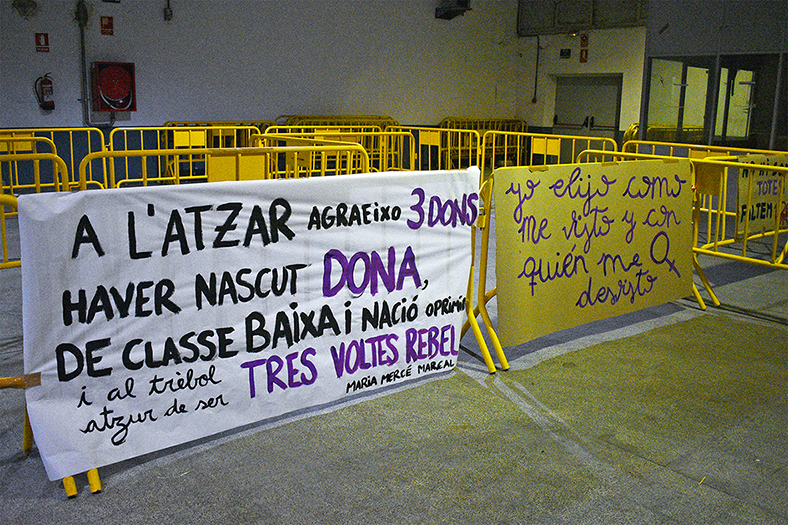 A L'ATZAR AGRAEIXO 3 DONS
HAVER NASCUT DONA,
DE CLASSE BAIXA i NACIÓ OPRIMI
i al trèbol
atzur de ser
TRES VOLTES REBEL
MARIA MERCÈ MARÇAL
yo elijo como
me visto y con
quién me
desvisto
TOTE
FALTEM